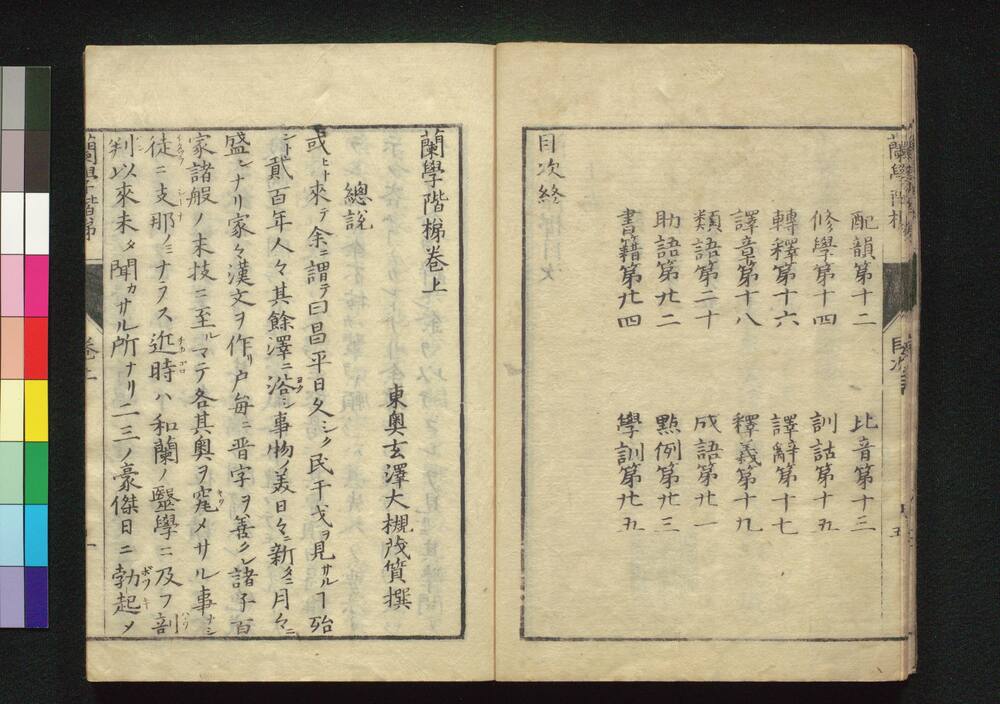 蘭學階梯
目次
五
配韻第十二
比音第十三
修學第十四
訓詁第十五
轉釋第十六
譯辭第十七
譯章第十八
釋義第十九
類語第二十
成語第廿一
助語第廿二
點例第廿三
書籍第廿四
學訓第廿五
目次終
蘭學階梯卷上
東奧玄澤大槻茂質撰
總說
或ヒト來テ余ニ謂テ曰昌平日久シク民干戈ヲ見サルヿ殆
ント貳百年人々其餘澤ニ浴シ事物ノ美日々ニ新タニ月々ニ
盛ンナリ家々漢文ヲ作リ戶每ニ晋字ヲ善クシ諸子百
家諸般ノ末技ニ至ルマテ各其奧ヲ窮メサル事ナシ
徒ニ支那ノミナラス近時ハ和蘭ノ毉學ニ及フ剖
判以來未タ聞カサル所ナリ二三ノ豪傑日ニ勃起メ
蘭學階梯
卷上
一